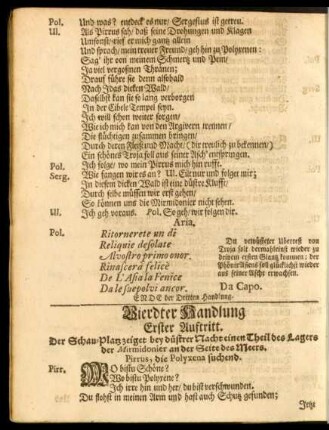 Pol. Und was? entdeck es nur/ Sergestus ist getreu.
Ul. Als Pirrus sah/ daß seine Drohungen und Klagen
Umsonst/ rief er mich ganz allein
Und sprach/ mein treuer Freund/ geh hin zu Polyxenen:
Sag' ihr von meinem Schmertz und Pein/
Ja viel vergoßnen Thränen;
Drauf führe sie denn alsobald
Nach Idas dicken Wald/
Daselbst kan sie so lang verborgen
In der Cibele Tempel seyn.
Ich will schon weiter sorgen/
Wie ich mich kan von den Argivern trennen/
Die flüchtigen zusammen bringen/
Durch deren Fleiß und Macht/ (dir treulich zu bekennen)
Ein schönes Troja soll aus seiner Asch' entspringen.
Pol. Ich folge/ wo mein Pirrus mich hin rufft.
Serg. Wie fangen wir es an? Ul. Eilt nur und folget mir;
In diesem dicken Wald ist eine düstre Klufft/
Durch selbe müssen wir erst gehen/
So können uns die Mirmidonier nicht sehen.
Ul. Ich geh voraus. Pol. So geh/ wir folgen dir.
Aria.
Pol. Ritornerete un dì
Reliquie desolate
Al vostro primo onor.
Rinascerà felice
De L'Asia la Fenice
Da le sue polvi ancor.
Der verwüstete Überrest von
Troja soll dermahleinst wieder zu
deinem ersten Glantz kommen; der
Phönix Asiens soll glücklichst wieder
aus seiner Asche erwachsen.
Da Capo.
ENDE der Dritten Handlung.
Vierdter Handlung
Erster Auftritt.
Der Schau-Platz zeiget bey düstrer Nacht einen Theil des Lagers
der Mirmidonier an der Seite des Meers.
Pirrus, die Polyxena suchend.
Pirr. WO bistu Schöne?
Wo bistu Polyxene?
Ich irre hin und her/ du bist verschwunden.
Du flohst in meinen Arm und hast auch Schutz gefunden;
Jetzt